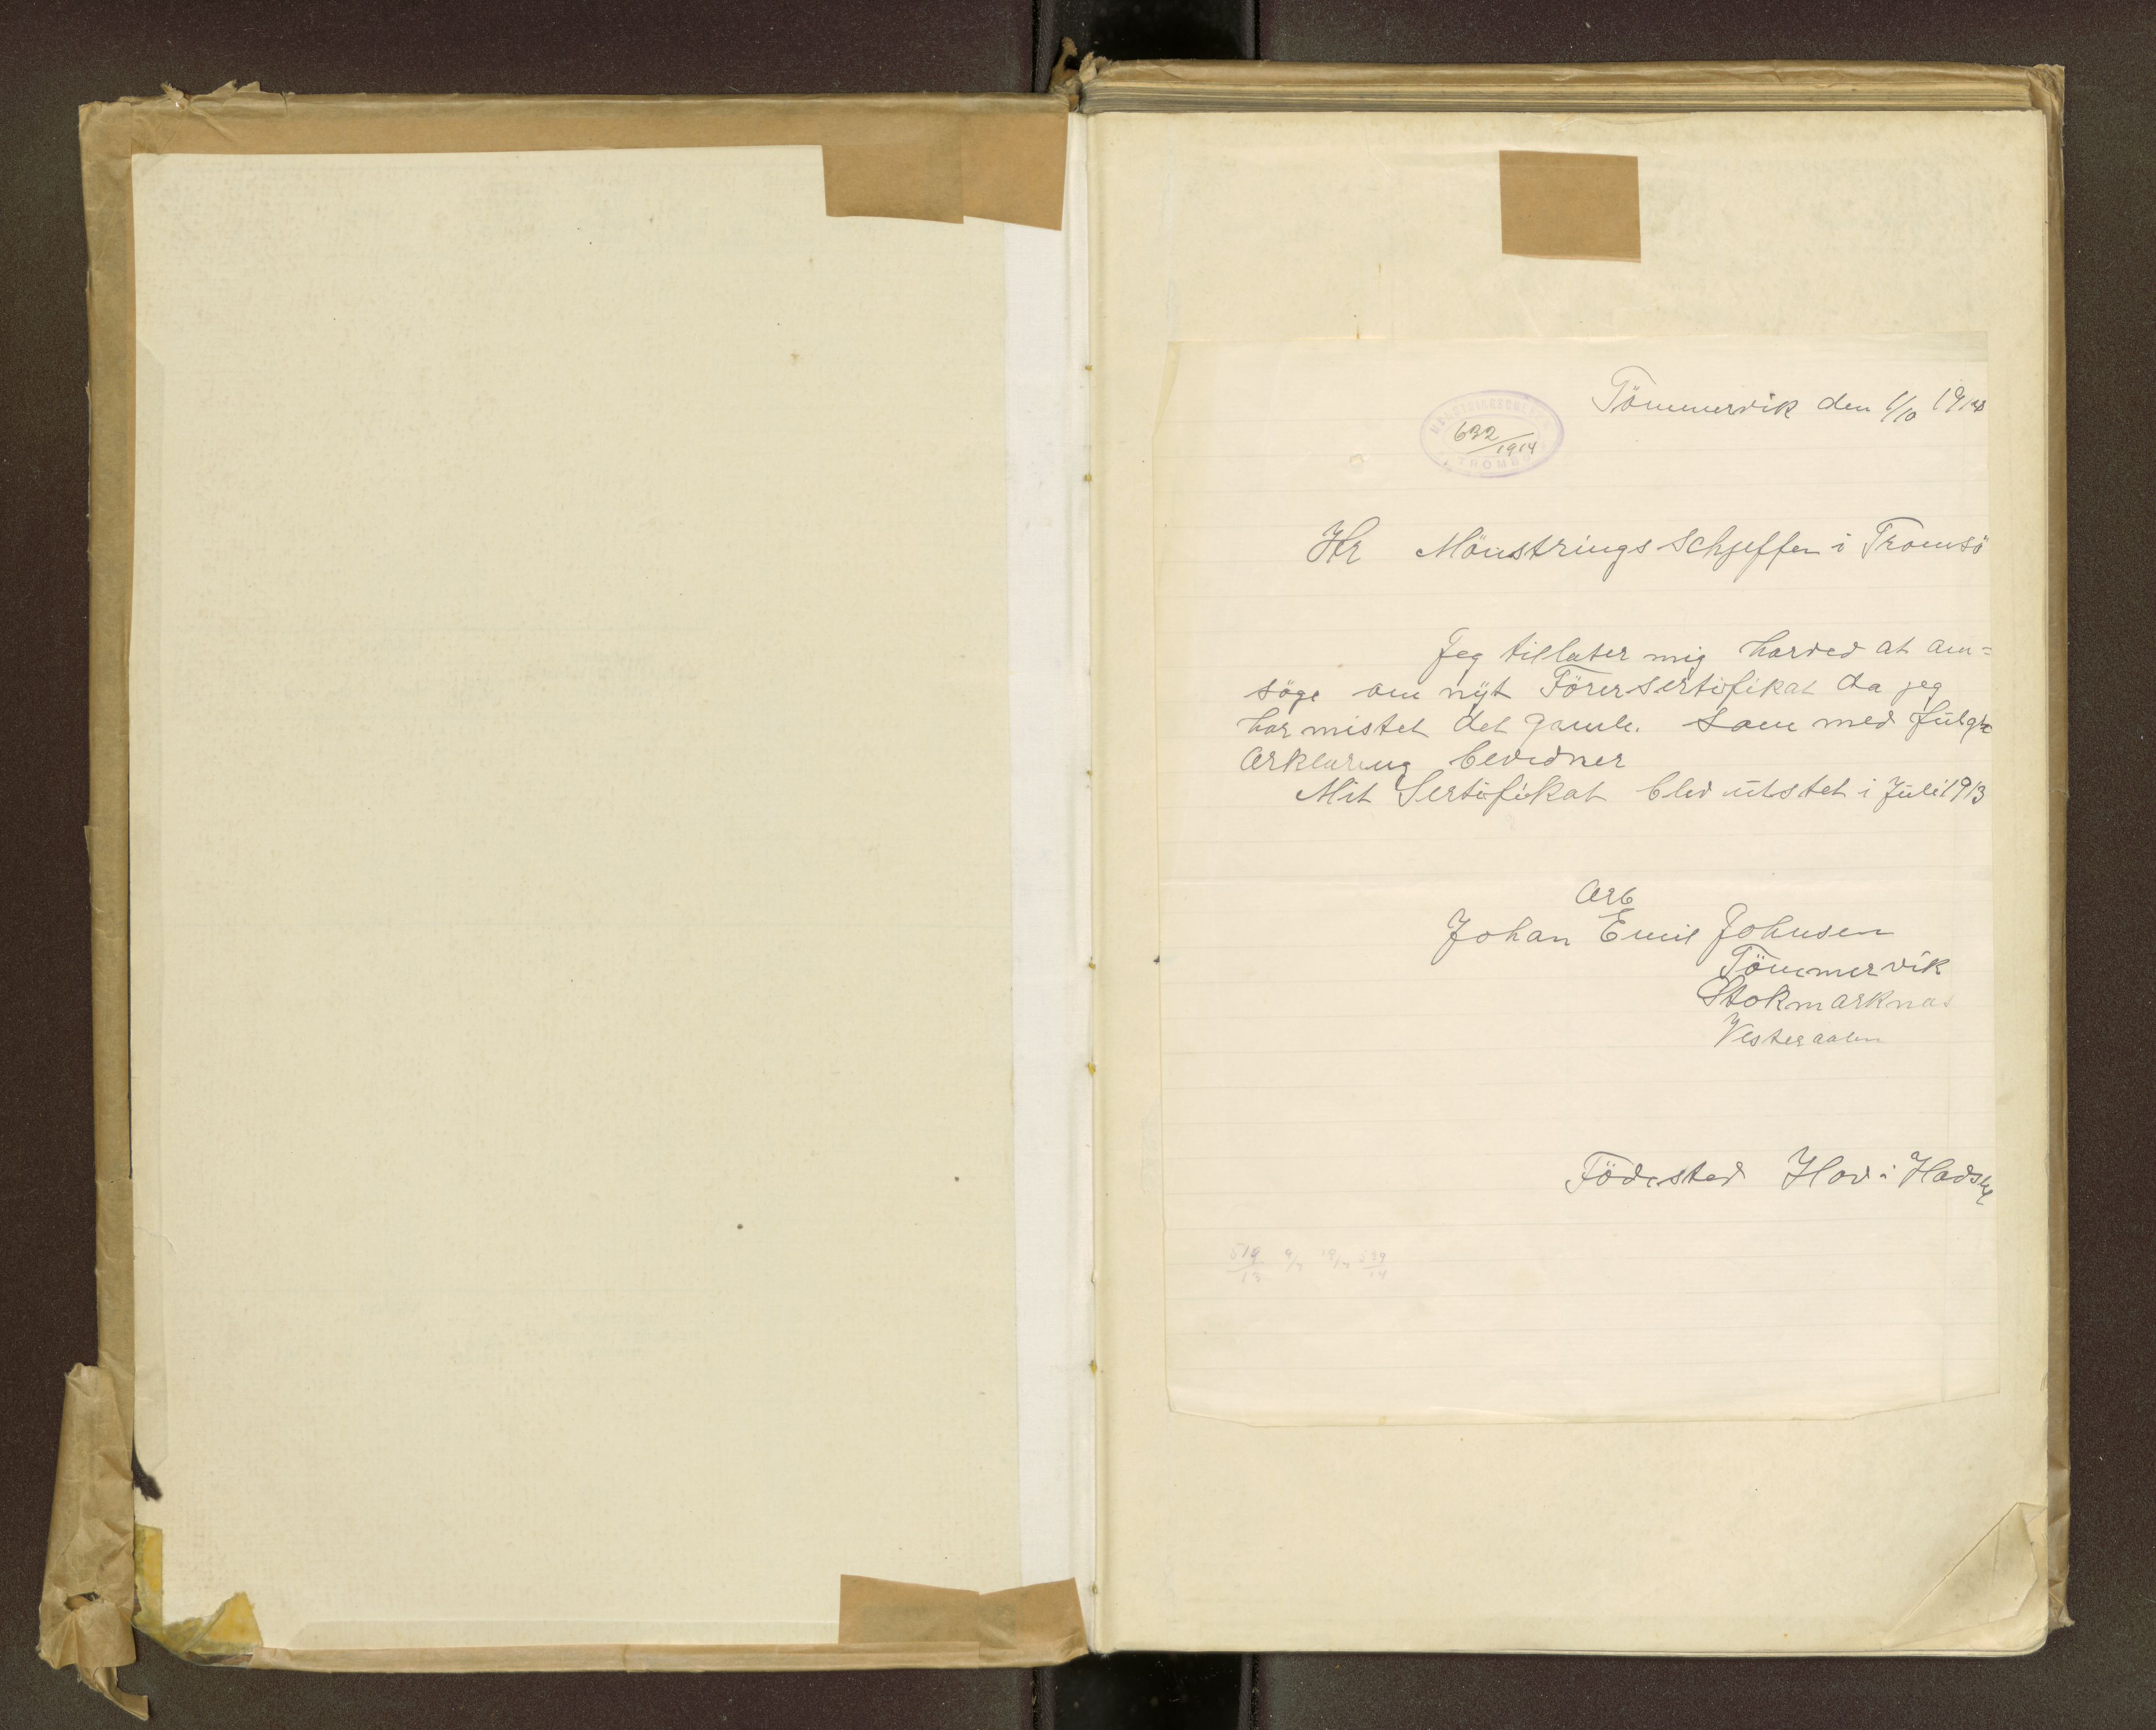 Tömmervik den 1/10 1914
632/1914
TROMSØ
Hr Mönstrings schjeffen i Tromsö
Jeg tillater mig herved at an=
söge om nyt Förersertifikat da jeg
har mistet det gamle. Som med fülgte
Erklæring bevidner
Mit Sertifikat blev ütstet i Jüli 1913
Erb
Johan Emil Johnsen
Tömmervik
Stokmarknæs
Vesteraalen
Födested Hov i Hadsel
519/13 9/7 539/14